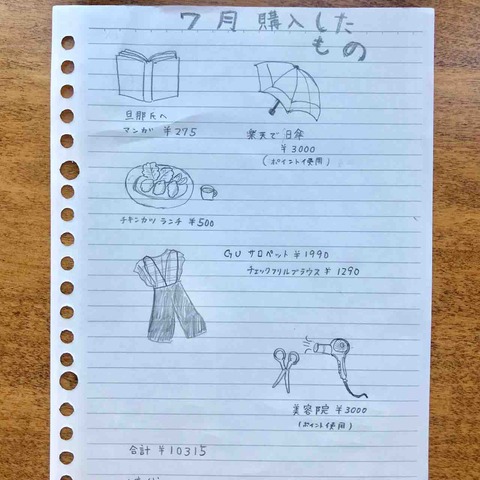 7月購入した
もの
旦那氏へ
マンガ ¥275
楽天で日傘
¥3000
(ポイント使用)
チキンカツランチ ¥500
GU サロペット ¥1990
チェックフリルブラウス ¥1290
美容院 ¥3000
(ポイント使用)
合計 ¥10315